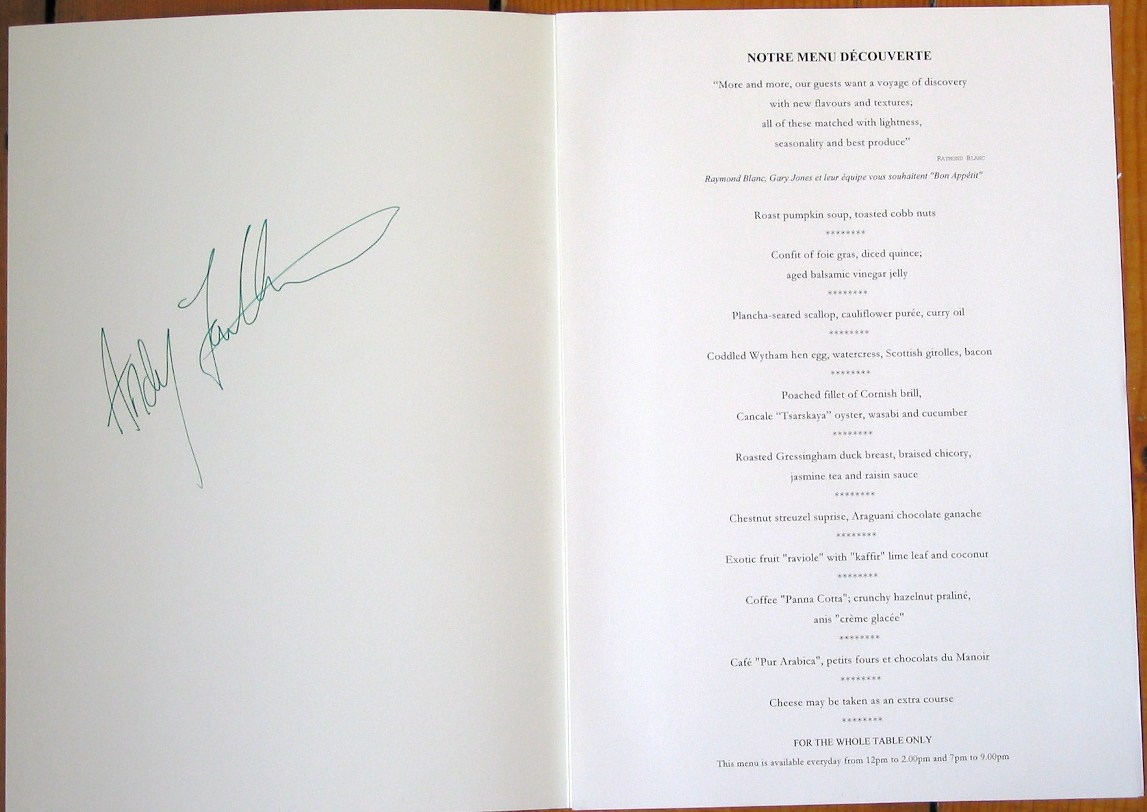 Andy
NOTRE MENU DÉCOUVERTE
“More and more, our guests want a voyage of discovery
with new flavours and textures;
all of these matched with lightness,
seasonality and best produce”
RAYMOND BLANC
Raymond Blanc, Gary Jones et leur équipe vous souhaitent "Bon Appétit"
Roast pumpkin soup, toasted cobb nuts
********
Confit of foie gras, diced quince;
aged balsamic vinegar jelly
********
Plancha-seared scallop, cauliflower purée, curry oil
********
Coddled Wytham hen egg, watercress, Scottish girolles, bacon
********
Poached fillet of Cornish brill,
Cancale “Tsarskaya” oyster, wasabi and cucumber
********
Roasted Gressingham duck breast, braised chicory,
jasmine tea and raisin sauce
********
Chestnut streuzel suprise, Araguani chocolate ganache
********
Exotic fruit "raviole" with "kaffir" lime leaf and coconut
********
Coffee "Panna Cotta"; crunchy hazelnut praliné,
anis "crème glacée"
********
Café "Pur Arabica", petits fours et chocolats du Manoir
********
Cheese may be taken as an extra course
********
FOR THE WHOLE TABLE ONLY
This menu is available everyday from 12pm to 2.00pm and 7pm to 9.00pm